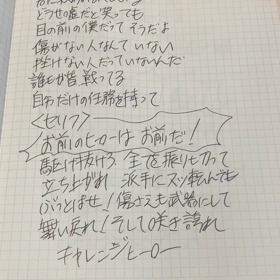 どうせ嘘だと笑っても
目の前の僕だってそうだよ
傷がない人なんていない
挫けない人だっていないんだ
誰もが皆戦ってる
自分だけの任務を持って
<セリフ>
お前のヒーローはお前だ!
駆け抜けろ 全て振り切って
立ち上がれ 派手にスッ転んでも
ぶっとばせ!傷さえも武器にして
舞い戻れ!そして咲き誇れ
チャレンジヒーロー